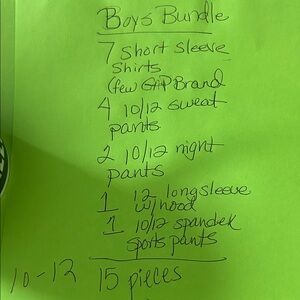 Boys Bundle
7 short sleeve
shirts
(few GAP Brand
4 10/12 sweat
pants
2 10/12 night
pants
1 12 longsleeve
w/hood
1 10/12 spandex
sports pants
10-12 15 pieces